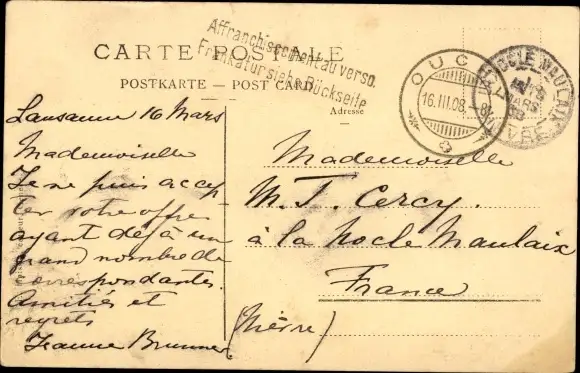 Affranchissement au verso.
Frankatur siehe Rückseite
CARTE POSTALE
POSTKARTE — POST CARD
Adresse
OUCHY
16.III.08.-8
LA NOCLE MAULAIX
MARS
08
NIÈVRE
Lausanne 16 Mars
Mademoiselle
Je ne puis accep
ter votre offre
ayant déjà un
grand nombre de
correspondantes.
Amitiés et
regrets
Jeanne Brunner
Mademoiselle
M. T. Cercy.
à la Nocle Maulaix
France
(Nièvre)